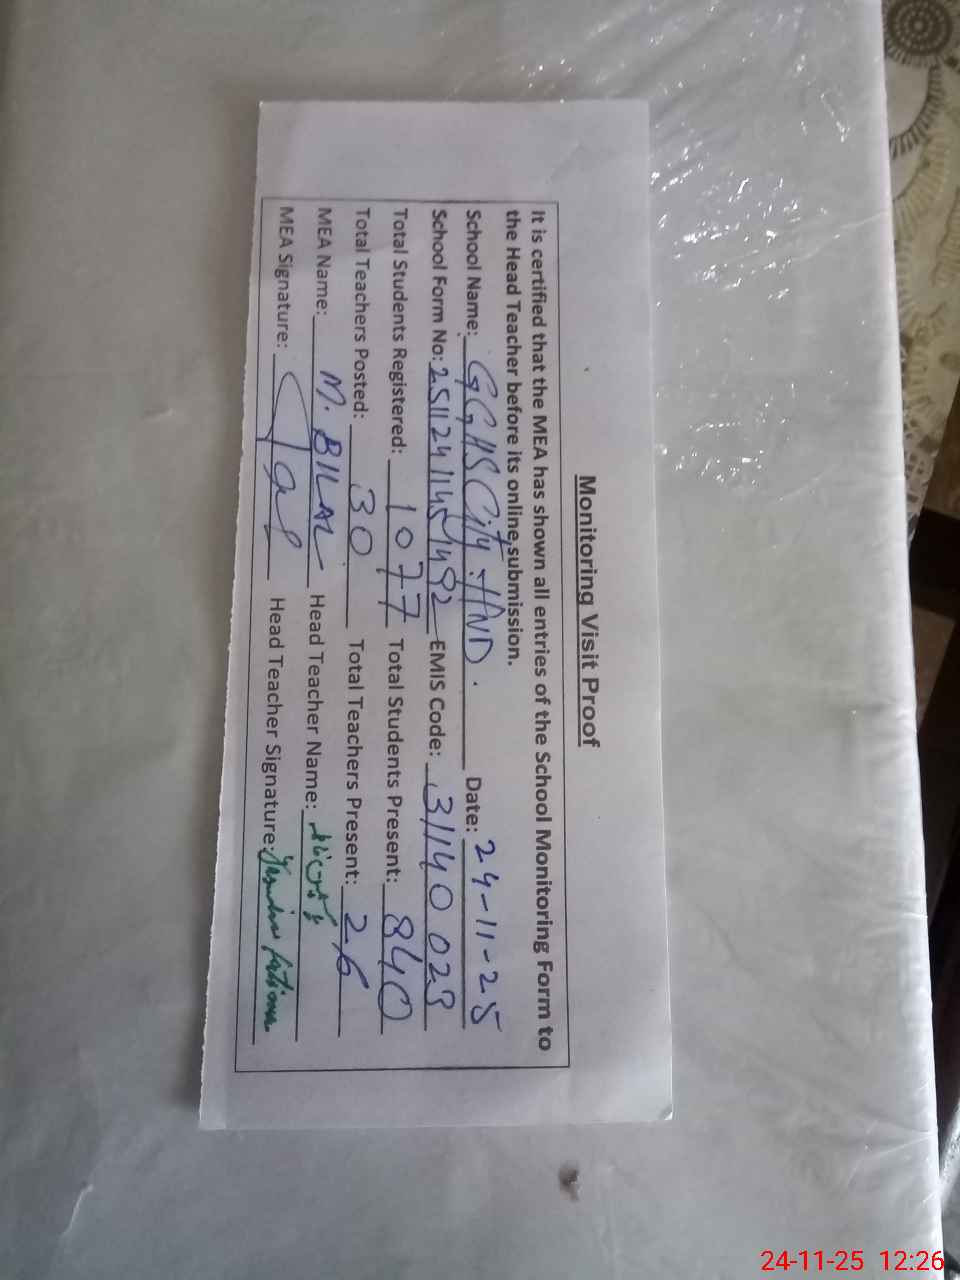 Monitoring Visit Proof
It is certified that the MEA has shown all entries of the School Monitoring Form to
the Head Teacher before its online submission.
School Name: GGHS City HND. Date: 24-11-25
School Form No: 25112411451492 EMIS Code: 31140023
Total Students Registered: 1077 Total Students Present: 840
Total Teachers Posted: 30 Total Teachers Present: 26
MEA Name: M. BILAL Head Teacher Name:
MEA Signature: Head Teacher Signature: Yasmin Fatima
24-11-25 12:26